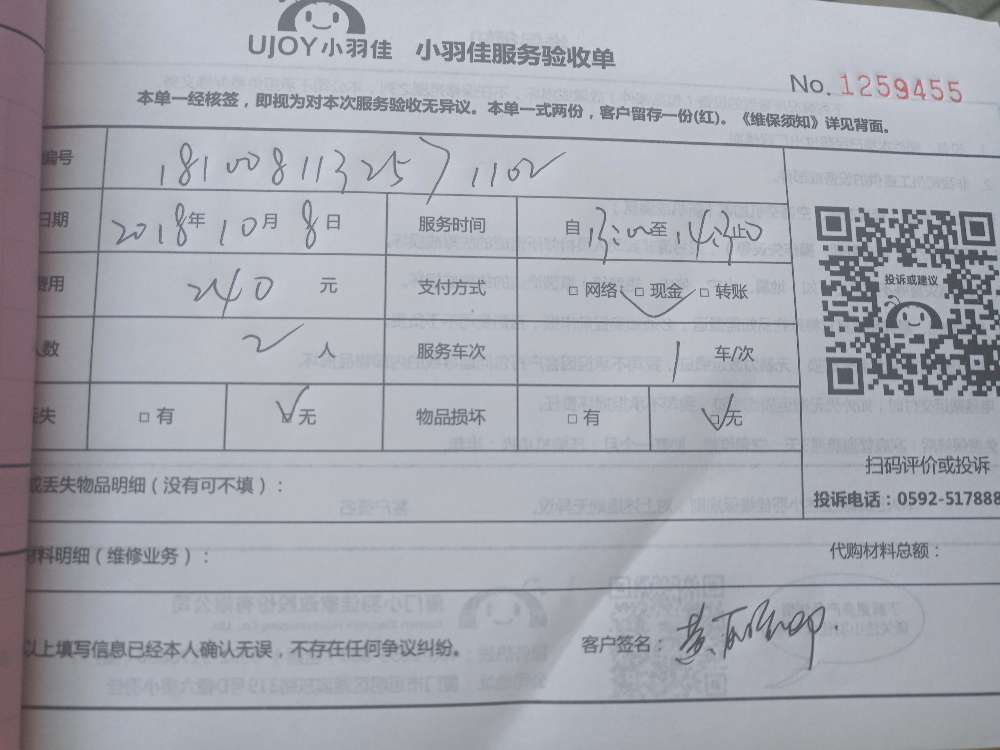 UJOY小羽佳 小羽佳服务验收单
No. 1259455
本单一经核签，即视为对本次服务验收无异议。本单一式两份，客户留存一份(红)。《维保须知》详见背面。
编号 18100811325 1102
日期 2018年 10月 8日 服务时间 自13:00至 止
费用 240 元 支付方式 □ 网络 □ 现金 □ 转账
人数 2 人 服务车次 1 车/次
失 □ 有 □ 无 物品损坏 □ 有 □ 无
投诉或建议
扫码评价或投诉
或丢失物品明细（没有可不填）：
投诉电话：0592-517888
材料明细（维修业务）：
代购材料总额：
以上填写信息已经本人确认无误，不存在任何争议纠纷。
客户签名：